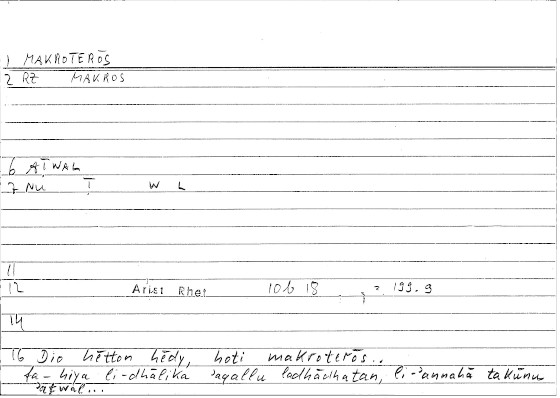 1 MAKROTERŌS
2 RZ MAKROS
6 AṬWAL
7 Nu Ṭ W L
11
12 Arist Rhet 10b 18 ; = 199.9
14
16 Dio hētton hēdy, hoti makroterōs..
fa-hiya li-dhālika ʾaqallu ladhādhatan, li-ʾannahā takūnu
ʾaṭwal...